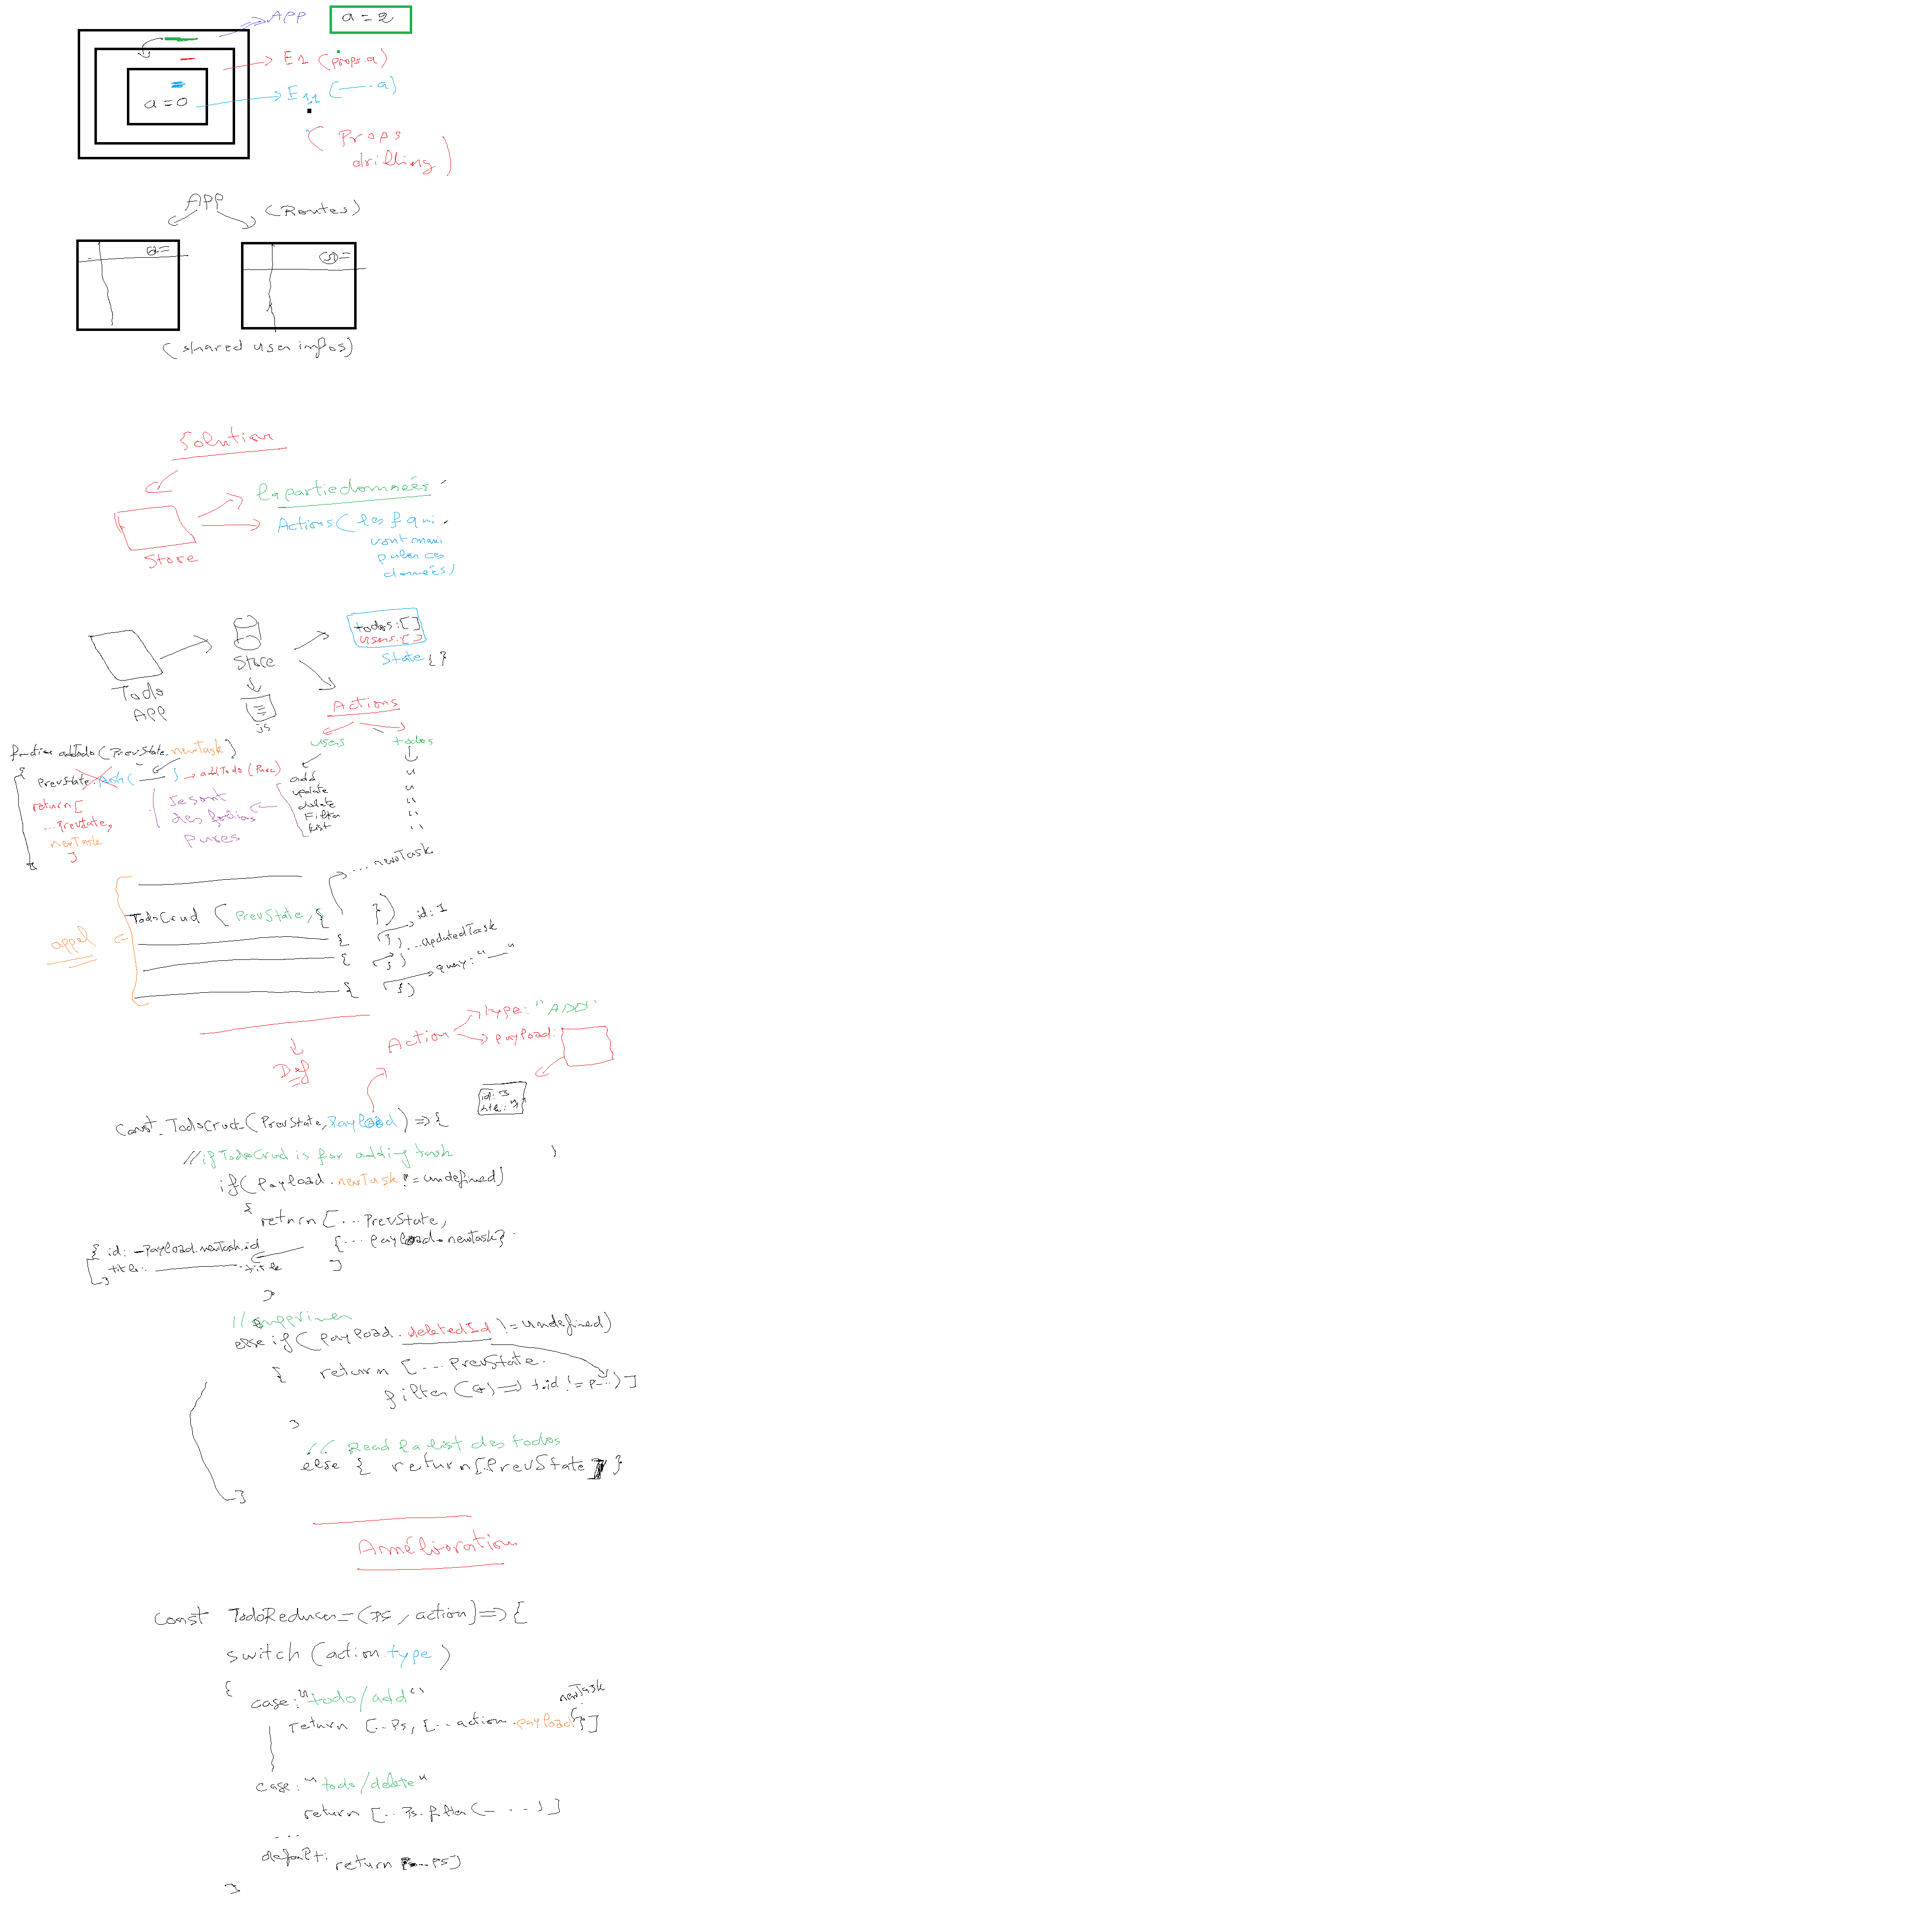 APP
a = 2
E1 (props.a)
E11 (—.a)
a = 0
( Props
drilling )
APP
(Routes)
(shared user infos)
Solution
la partie données
Actions ( les f qui
vont mani
puler ces
données)
Store
todos: []
users: []
State { }
Store
Todo
APP
JS
Actions
users
todos
function addTodo (PrevState, newTask)
{
PrevState.push( ) → addTodo (Pure)
return [
...PrevState,
newTask
]
}
add
update
delete
Filter
list
Ce sont
des fctions
Pures
... newTask
TodoCrud (PrevState, { })
id: 1
{ })
...updatedTask
{ })
query: "—"
{ })
appel
Action
type: "ADD"
payload:
Def
id: 3
title: "
const TodoCrud = (PrevState, Payload) => {
// if TodoCrud is for adding task
if (Payload.newTask != undefined)
{
return [...PrevState,
{... payload.newTask}
]
{ id: Payload.newTask.id
title: ——— .title
}
}
// supprimer
else if (payload.deletedId != undefined)
{ return [...PrevState.
filter (t) => t.id != p...) ]
}
// Read la list des todos
else { return [..PrevState] }
}
Amélioration
const TodoReducer = (PS, action) => {
switch (action.type)
{
case: "todo/add"
newTask
return [..Ps, {... action.payload}]
case: "todo/delete"
return [...Ps.filter(— ...)]
...
default: return [...PS]
}